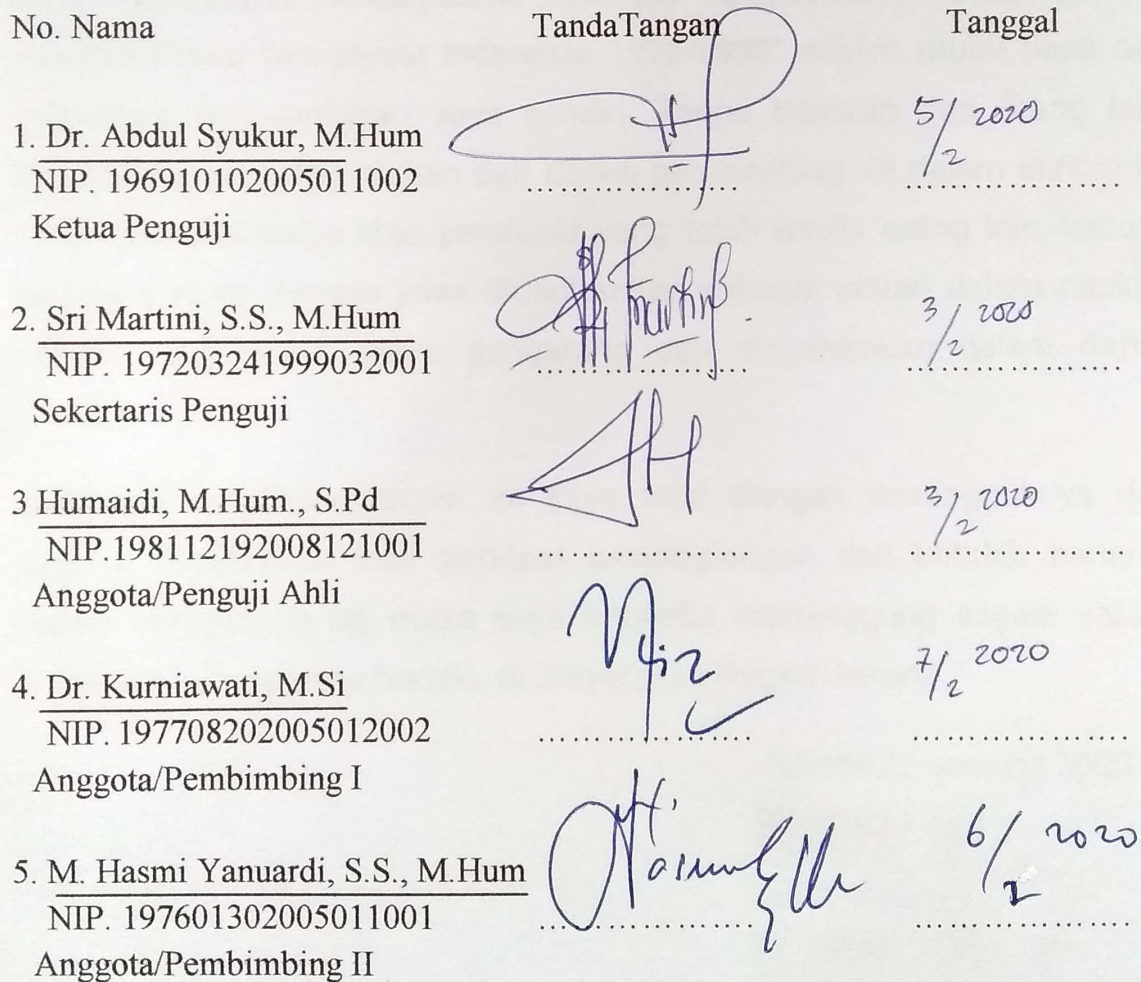 No. Nama TandaTangan Tanggal
1. Dr. Abdul Syukur, M.Hum 5/2 2020
NIP. 196910102005011002 ....................
Ketua Penguji
2. Sri Martini, S.S., M.Hum 3/2 2020
NIP. 197203241999032001 ....................
Sekertaris Penguji
3 Humaidi, M.Hum., S.Pd 3/2 2020
NIP.198112192008121001 ....................
Anggota/Penguji Ahli
4. Dr. Kurniawati, M.Si 7/2 2020
NIP. 197708202005012002 ....................
Anggota/Pembimbing I
5. M. Hasmi Yanuardi, S.S., M.Hum 6/2 2020
NIP. 197601302005011001 ....................
Anggota/Pembimbing II